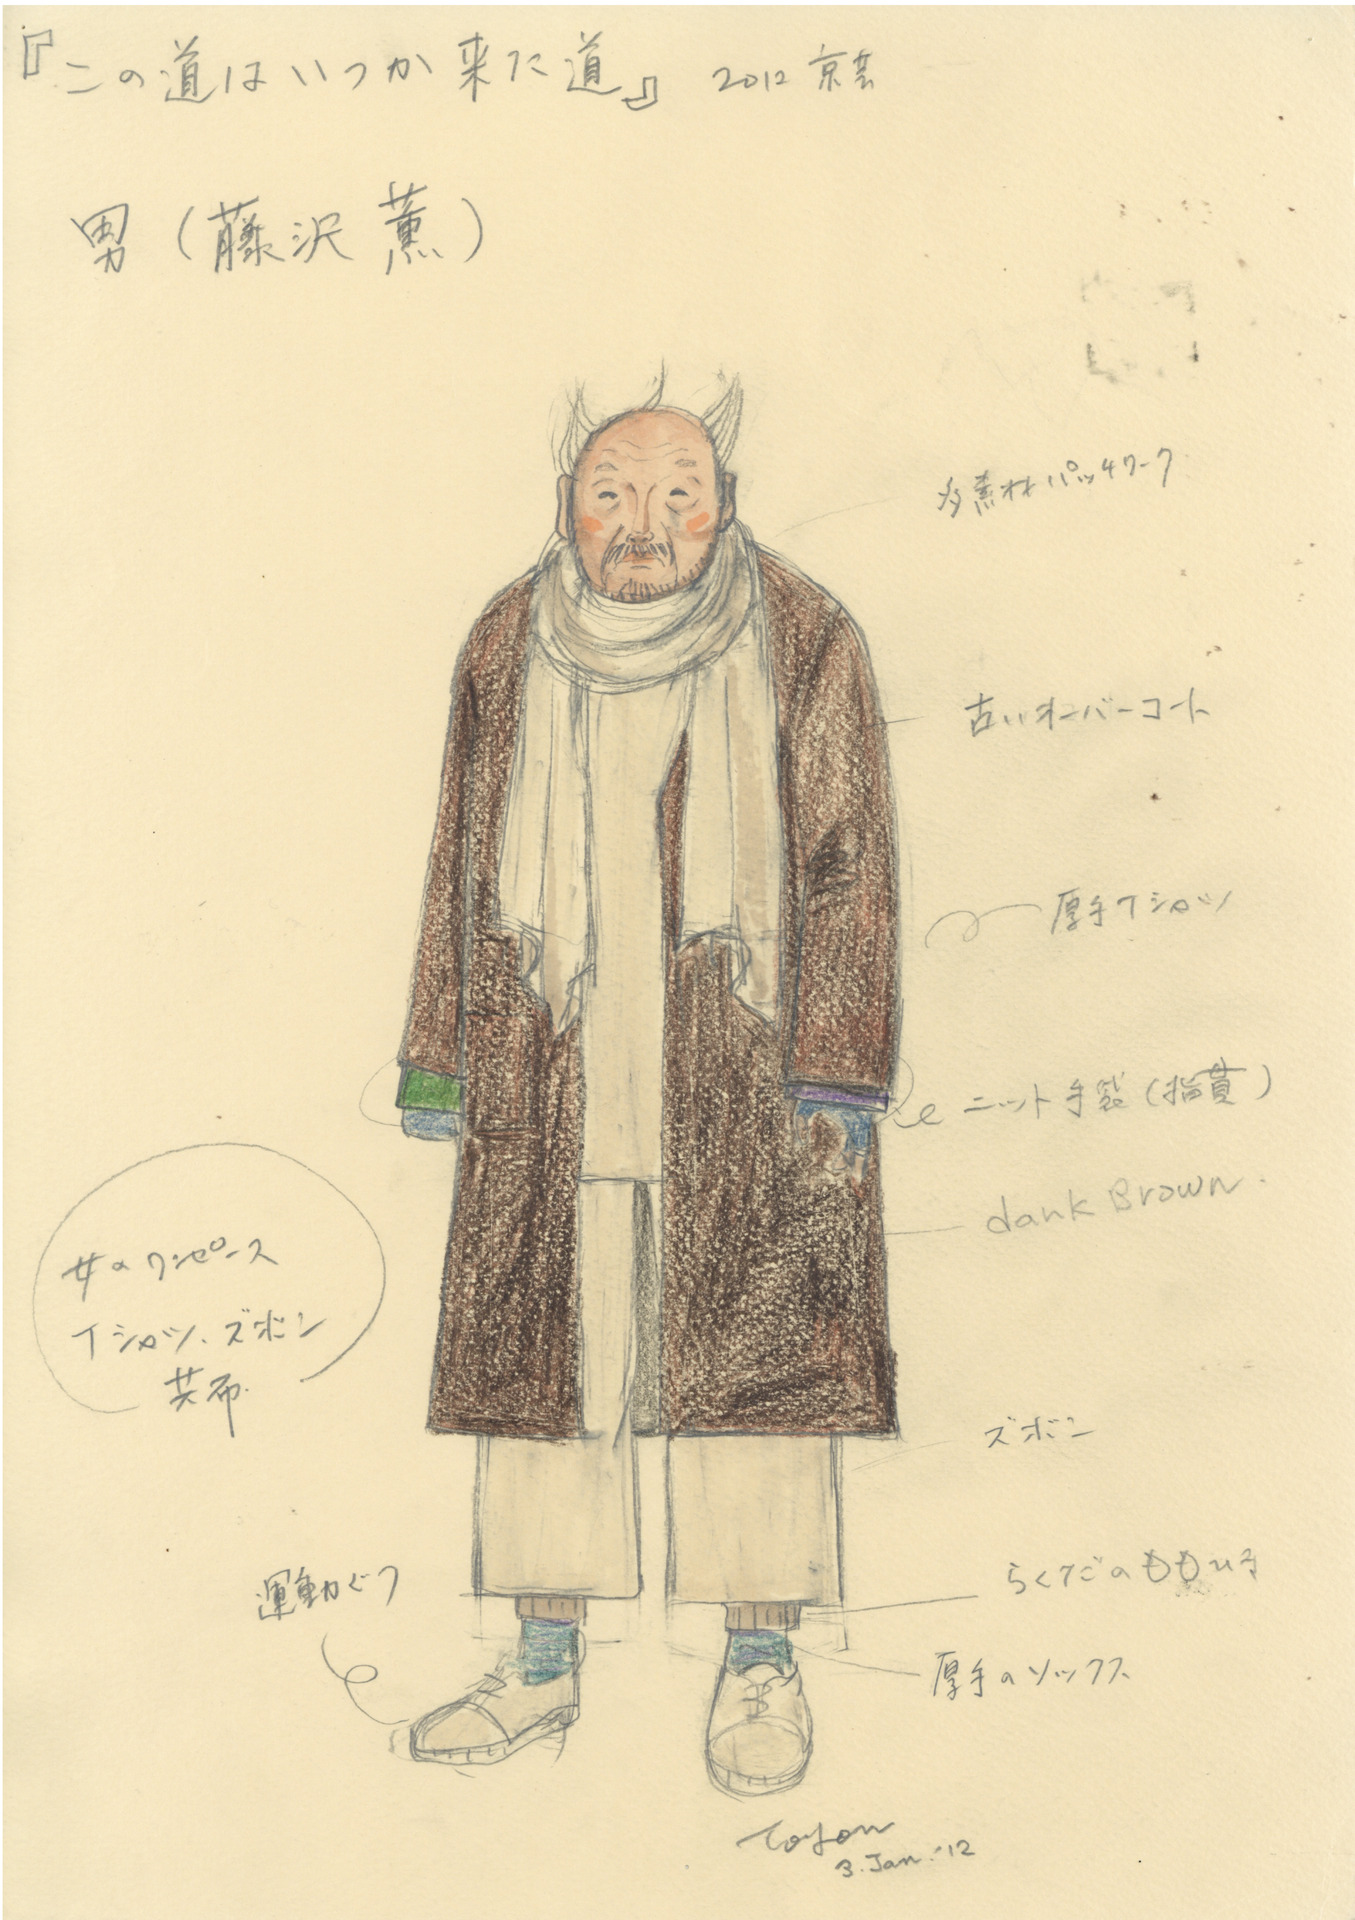 『この道はいつか来た道』 2012 京芸
男(藤沢 薫)
多素材パッチワーク
古いオーバーコート
厚手Tシャツ
ニット手袋(指貫)
dark Brown.
女のワンピース
Tシャツ、ズボン
共布
ズボン
らくだのももひき
運動ぐつ
厚手のソックス
3.Jan.'12